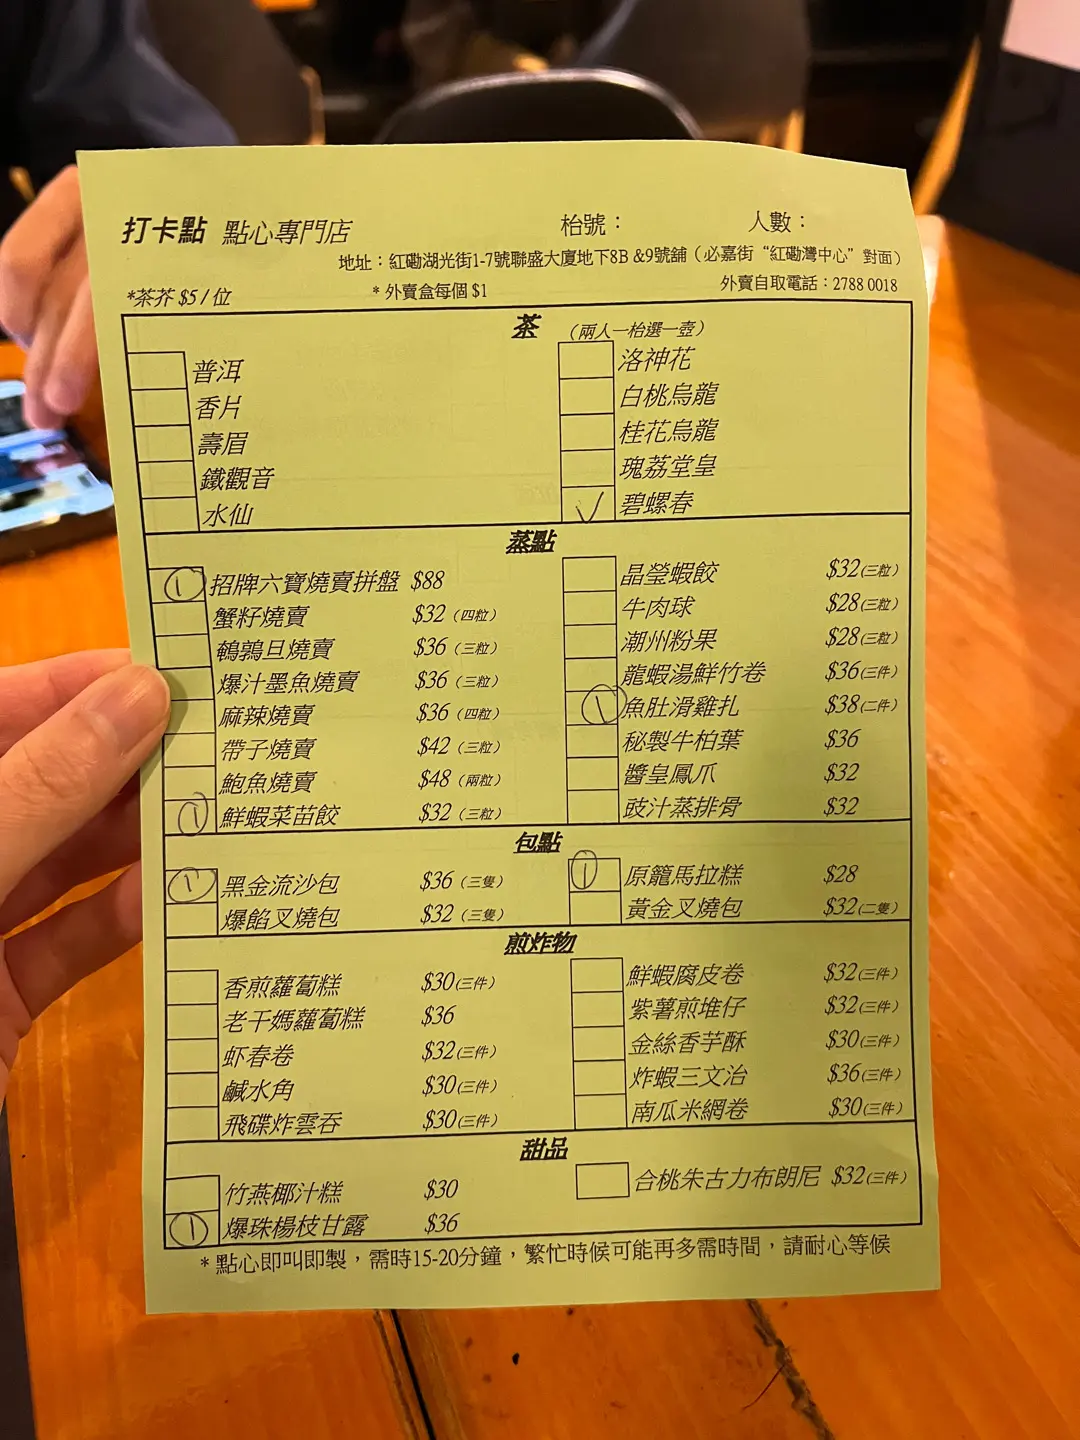 打卡點 點心專門店 枱號： 人數：
地址：紅磡湖光街1-7號聯盛大廈地下8B &9號舖（必嘉街“紅磡灣中心”對面）
*茶芥 $5 / 位 * 外賣盒每個 $1 外賣自取電話：2788 0018
茶 （兩人一枱選一壺）
普洱
香片
壽眉
鐵觀音
水仙
洛神花
白桃烏龍
桂花烏龍
瑰荔堂皇
✓ 碧螺春
蒸點
1 招牌六寶燒賣拼盤 $88
蟹籽燒賣 $32（四粒）
鵪鶉旦燒賣 $36（三粒）
爆汁墨魚燒賣 $36（三粒）
麻辣燒賣 $36（四粒）
帶子燒賣 $42（三粒）
鮑魚燒賣 $48（兩粒）
1 鮮蝦菜苗餃 $32（三粒）
晶瑩蝦餃 $32(三粒)
牛肉球 $28(三粒)
潮州粉果 $28(三粒)
龍蝦湯鮮竹卷 $36(三件)
1 魚肚滑雞扎 $38(二件)
秘製牛柏葉 $36
醬皇鳳爪 $32
豉汁蒸排骨 $32
包點
1 黑金流沙包 $36（三隻）
爆餡叉燒包 $32（三隻）
1 原籠馬拉糕 $28
黃金叉燒包 $32(二隻)
煎炸物
香煎蘿蔔糕 $30(三件)
老干媽蘿蔔糕 $36
虾春卷 $32(三件)
鹹水角 $30(三件)
飛碟炸雲吞 $30(三件)
鮮蝦腐皮卷 $32(三件)
紫薯煎堆仔 $32(三件)
金絲香芋酥 $30(三件)
炸蝦三文治 $36(三件)
南瓜米網卷 $30(三件)
甜品
竹燕椰汁糕 $30
1 爆珠楊枝甘露 $36
合桃朱古力布朗尼 $32(三件)
* 點心即叫即製，需時15-20分鐘，繁忙時候可能再多需時間，請耐心等候